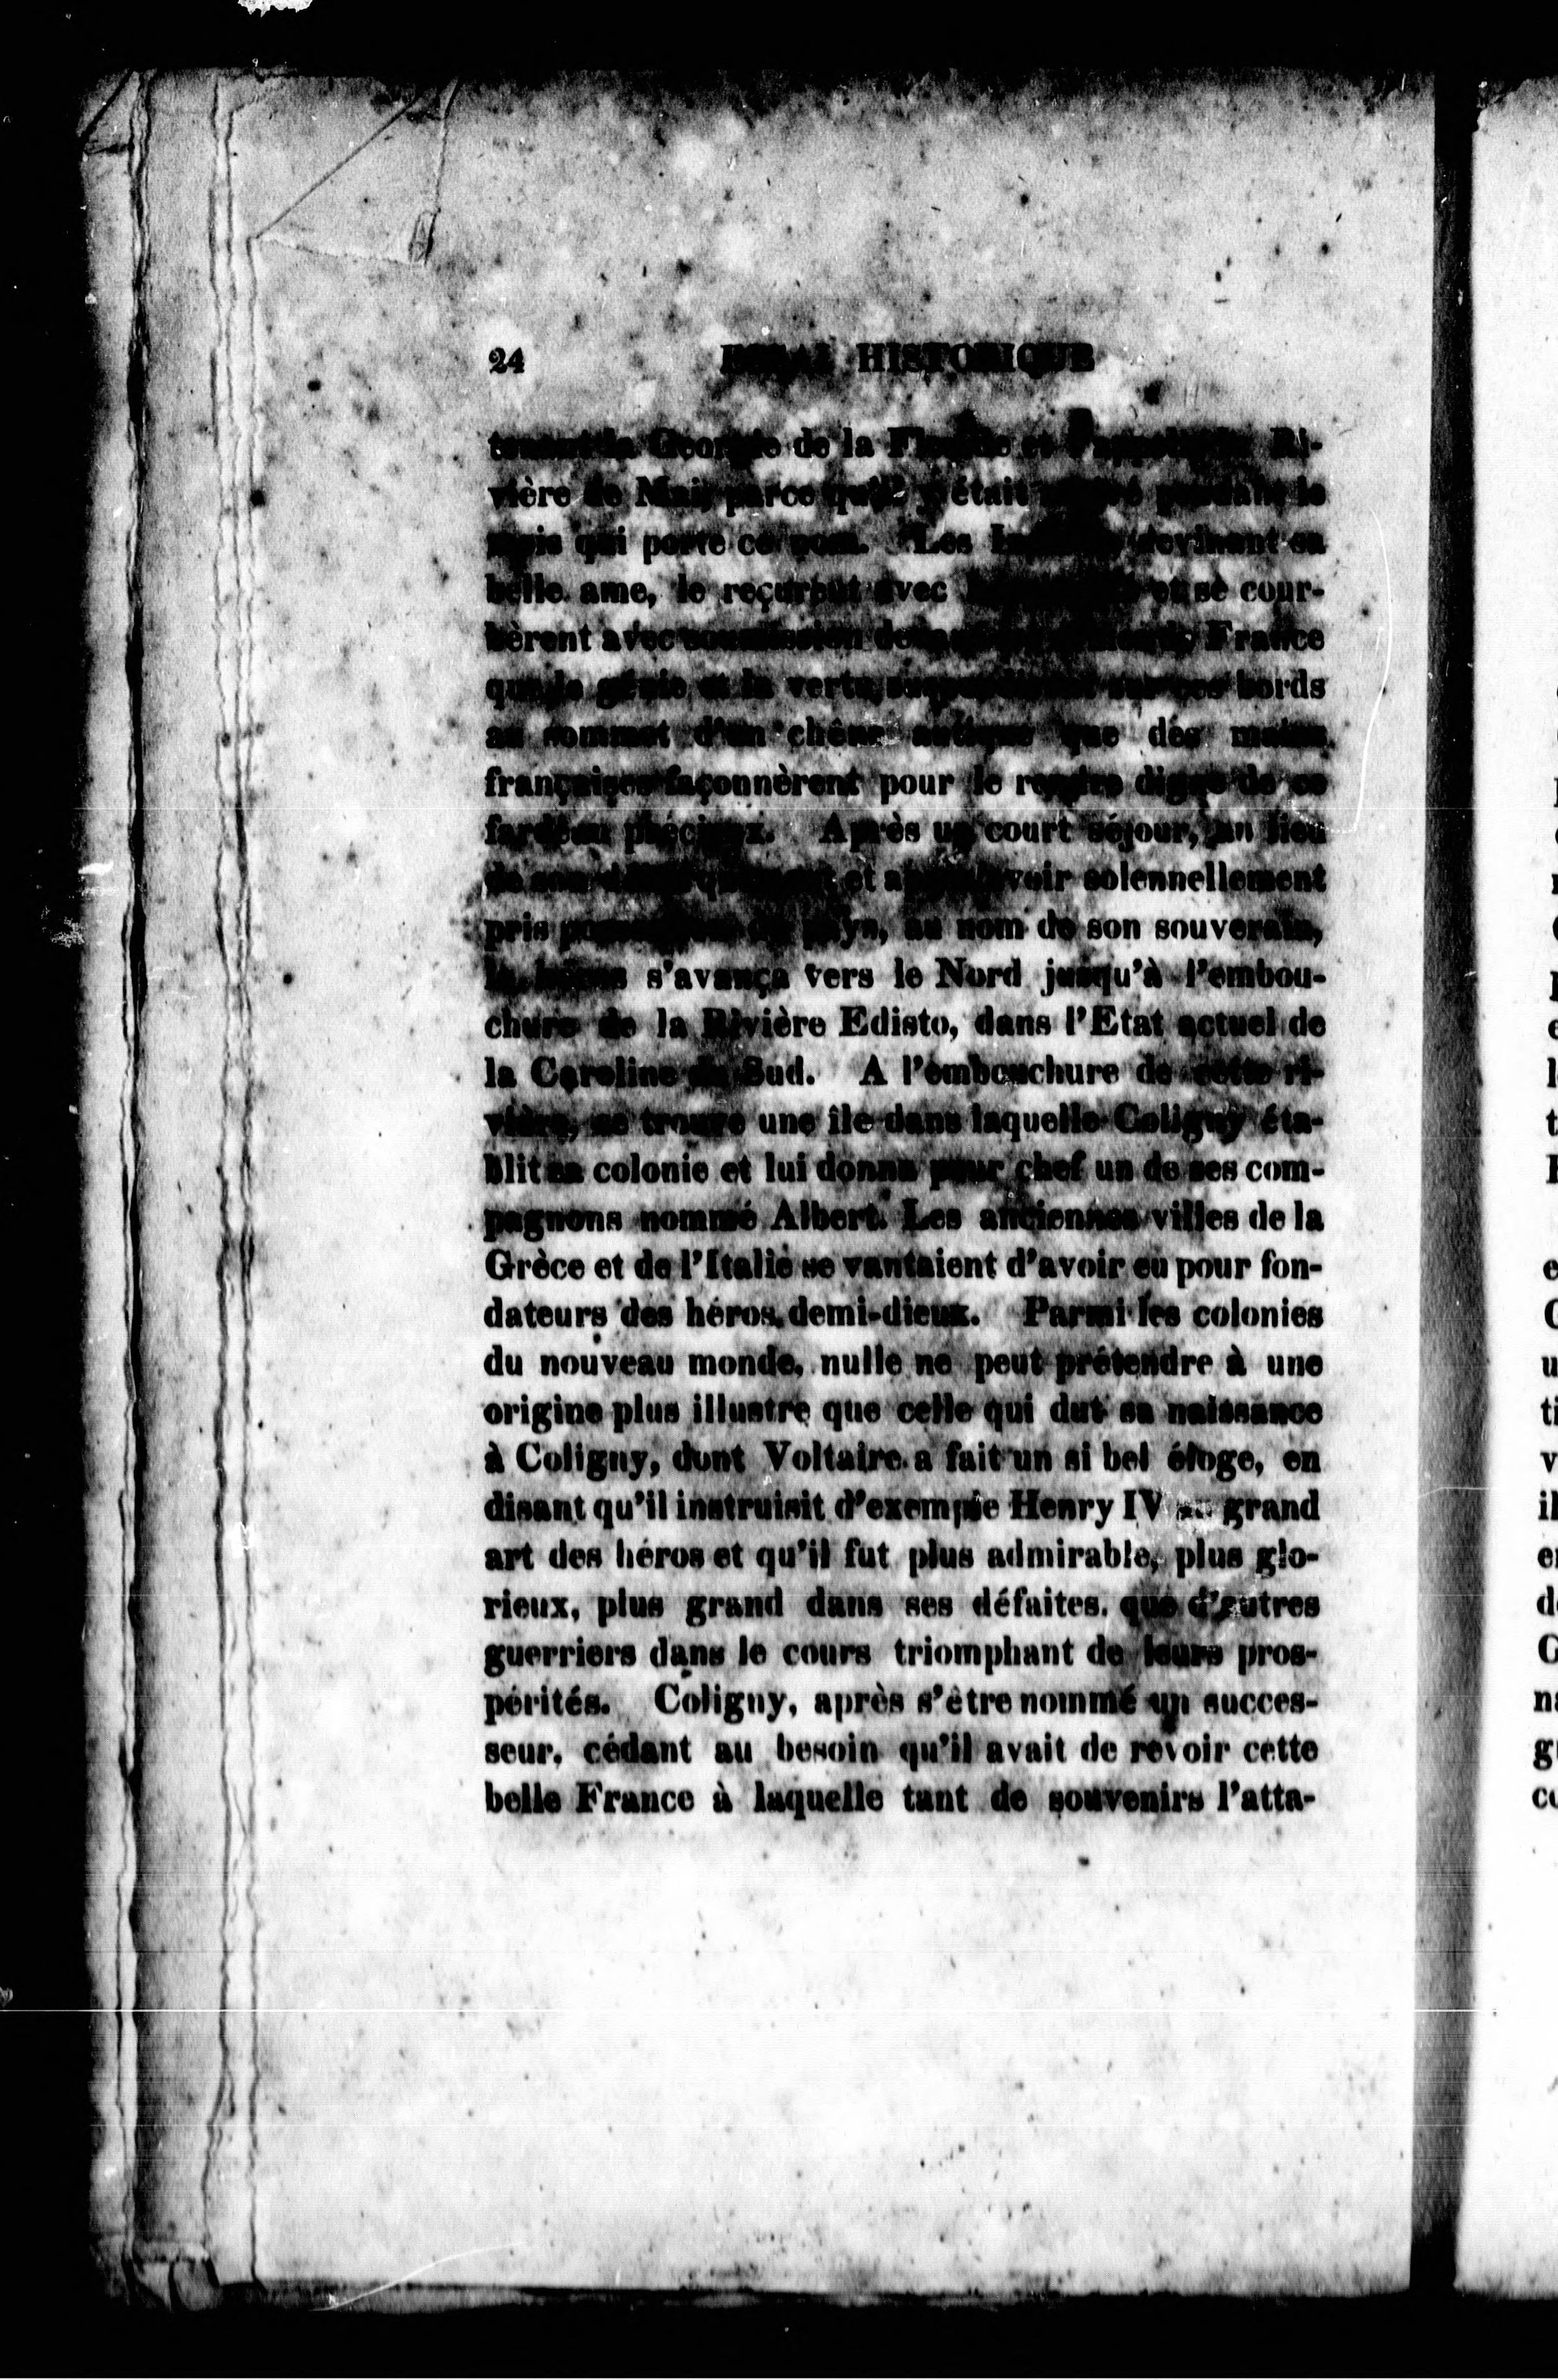 24 ESSAI HISTORIQUE
la Georgie de la Floride et l'appela Ri-
vière de Mai, parce qu'il y était pendant le
mois qui porte ce nom. Les devinant sa
belle ame, le reçurent avec et se cour-
bèrent avec soumission France
que le génie et la vertu sur ces bords
au sommet d'un chêne antique que des mains
françaises façonnèrent pour le rendre digne de ce
fardeau précieux. Après un court séjour, au lieu
de son et après avoir solennellement
pris possession du pays, au nom de son souverain,
s'avança vers le Nord jusqu'à l'embou-
chure de la Rivière Edisto, dans l'Etat actuel de
la Caroline du Sud. A l'embouchure de cette ri-
vière, se trouve une île dans laquelle Coligny éta-
blit sa colonie et lui donna pour chef un de ses com-
pagnons nommé Albert. Les anciennes villes de la
Grèce et de l'Italie se vantaient d'avoir eu pour fon-
dateurs des héros, demi-dieux. Parmi les colonies
du nouveau monde, nulle ne peut prétendre à une
origine plus illustre que celle qui dut sa naissance
à Coligny, dont Voltaire a fait un si bel éloge, en
disant qu'il instruisit d'exemple Henry IV au grand
art des héros et qu'il fut plus admirable, plus glo-
rieux, plus grand dans ses défaites, que d'autres
guerriers dans le cours triomphant de leurs pros-
pérités. Coligny, après s'être nommé un succes-
seur, cédant au besoin qu'il avait de revoir cette
belle France à laquelle tant de souvenirs l'atta-